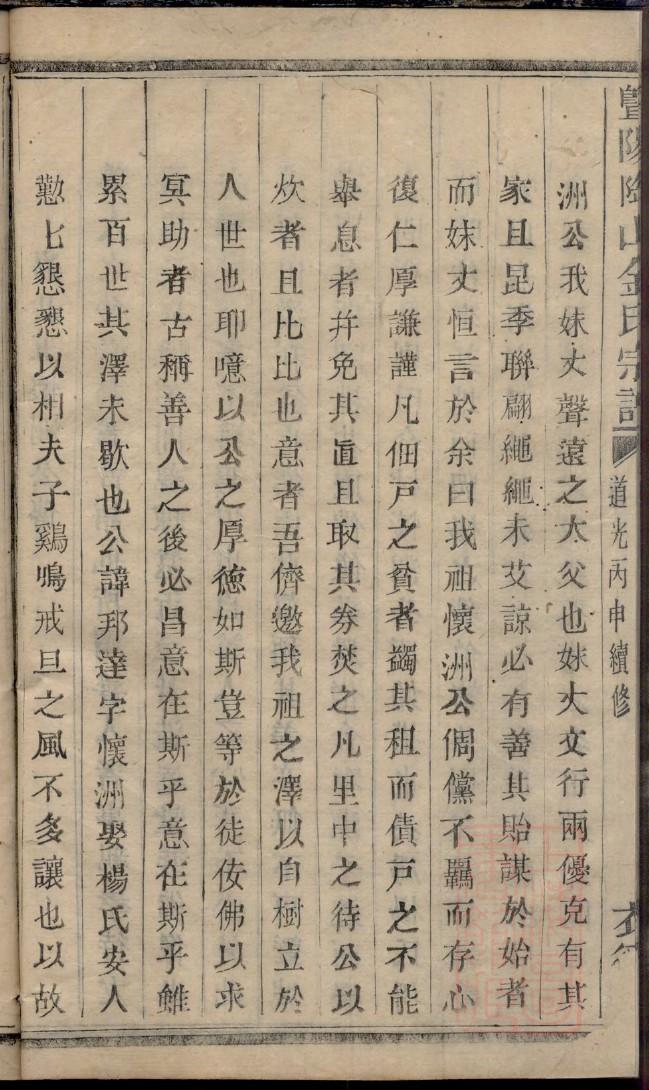 暨陽陶山金氏宗譜 道光丙申續修
洲公我妹丈聲遠之大父也妹丈文行兩優克有其
家且昆季聯翩繩繩未艾諒必有善其貽謀於始者
而妹丈恒言於余曰我祖懷洲公倜儻不羈而存心
復仁厚謙謹凡佃戸之貧者蠲其租而債戸之不能
舉息者并免其直且取其券焚之凡里中之待公以
炊者且比比也意者吾儕邀我祖之澤以自樹立於
人世也耶噫以公之厚德如斯豈等於徒佞佛以求
冥助者古稱善人之後必昌意在斯乎意在斯乎雖
累百世其澤未歇也公諱邦達字懷洲娶楊氏安人
懃七懇懇以相夫子鷄鳴戒旦之風不多讓也以故